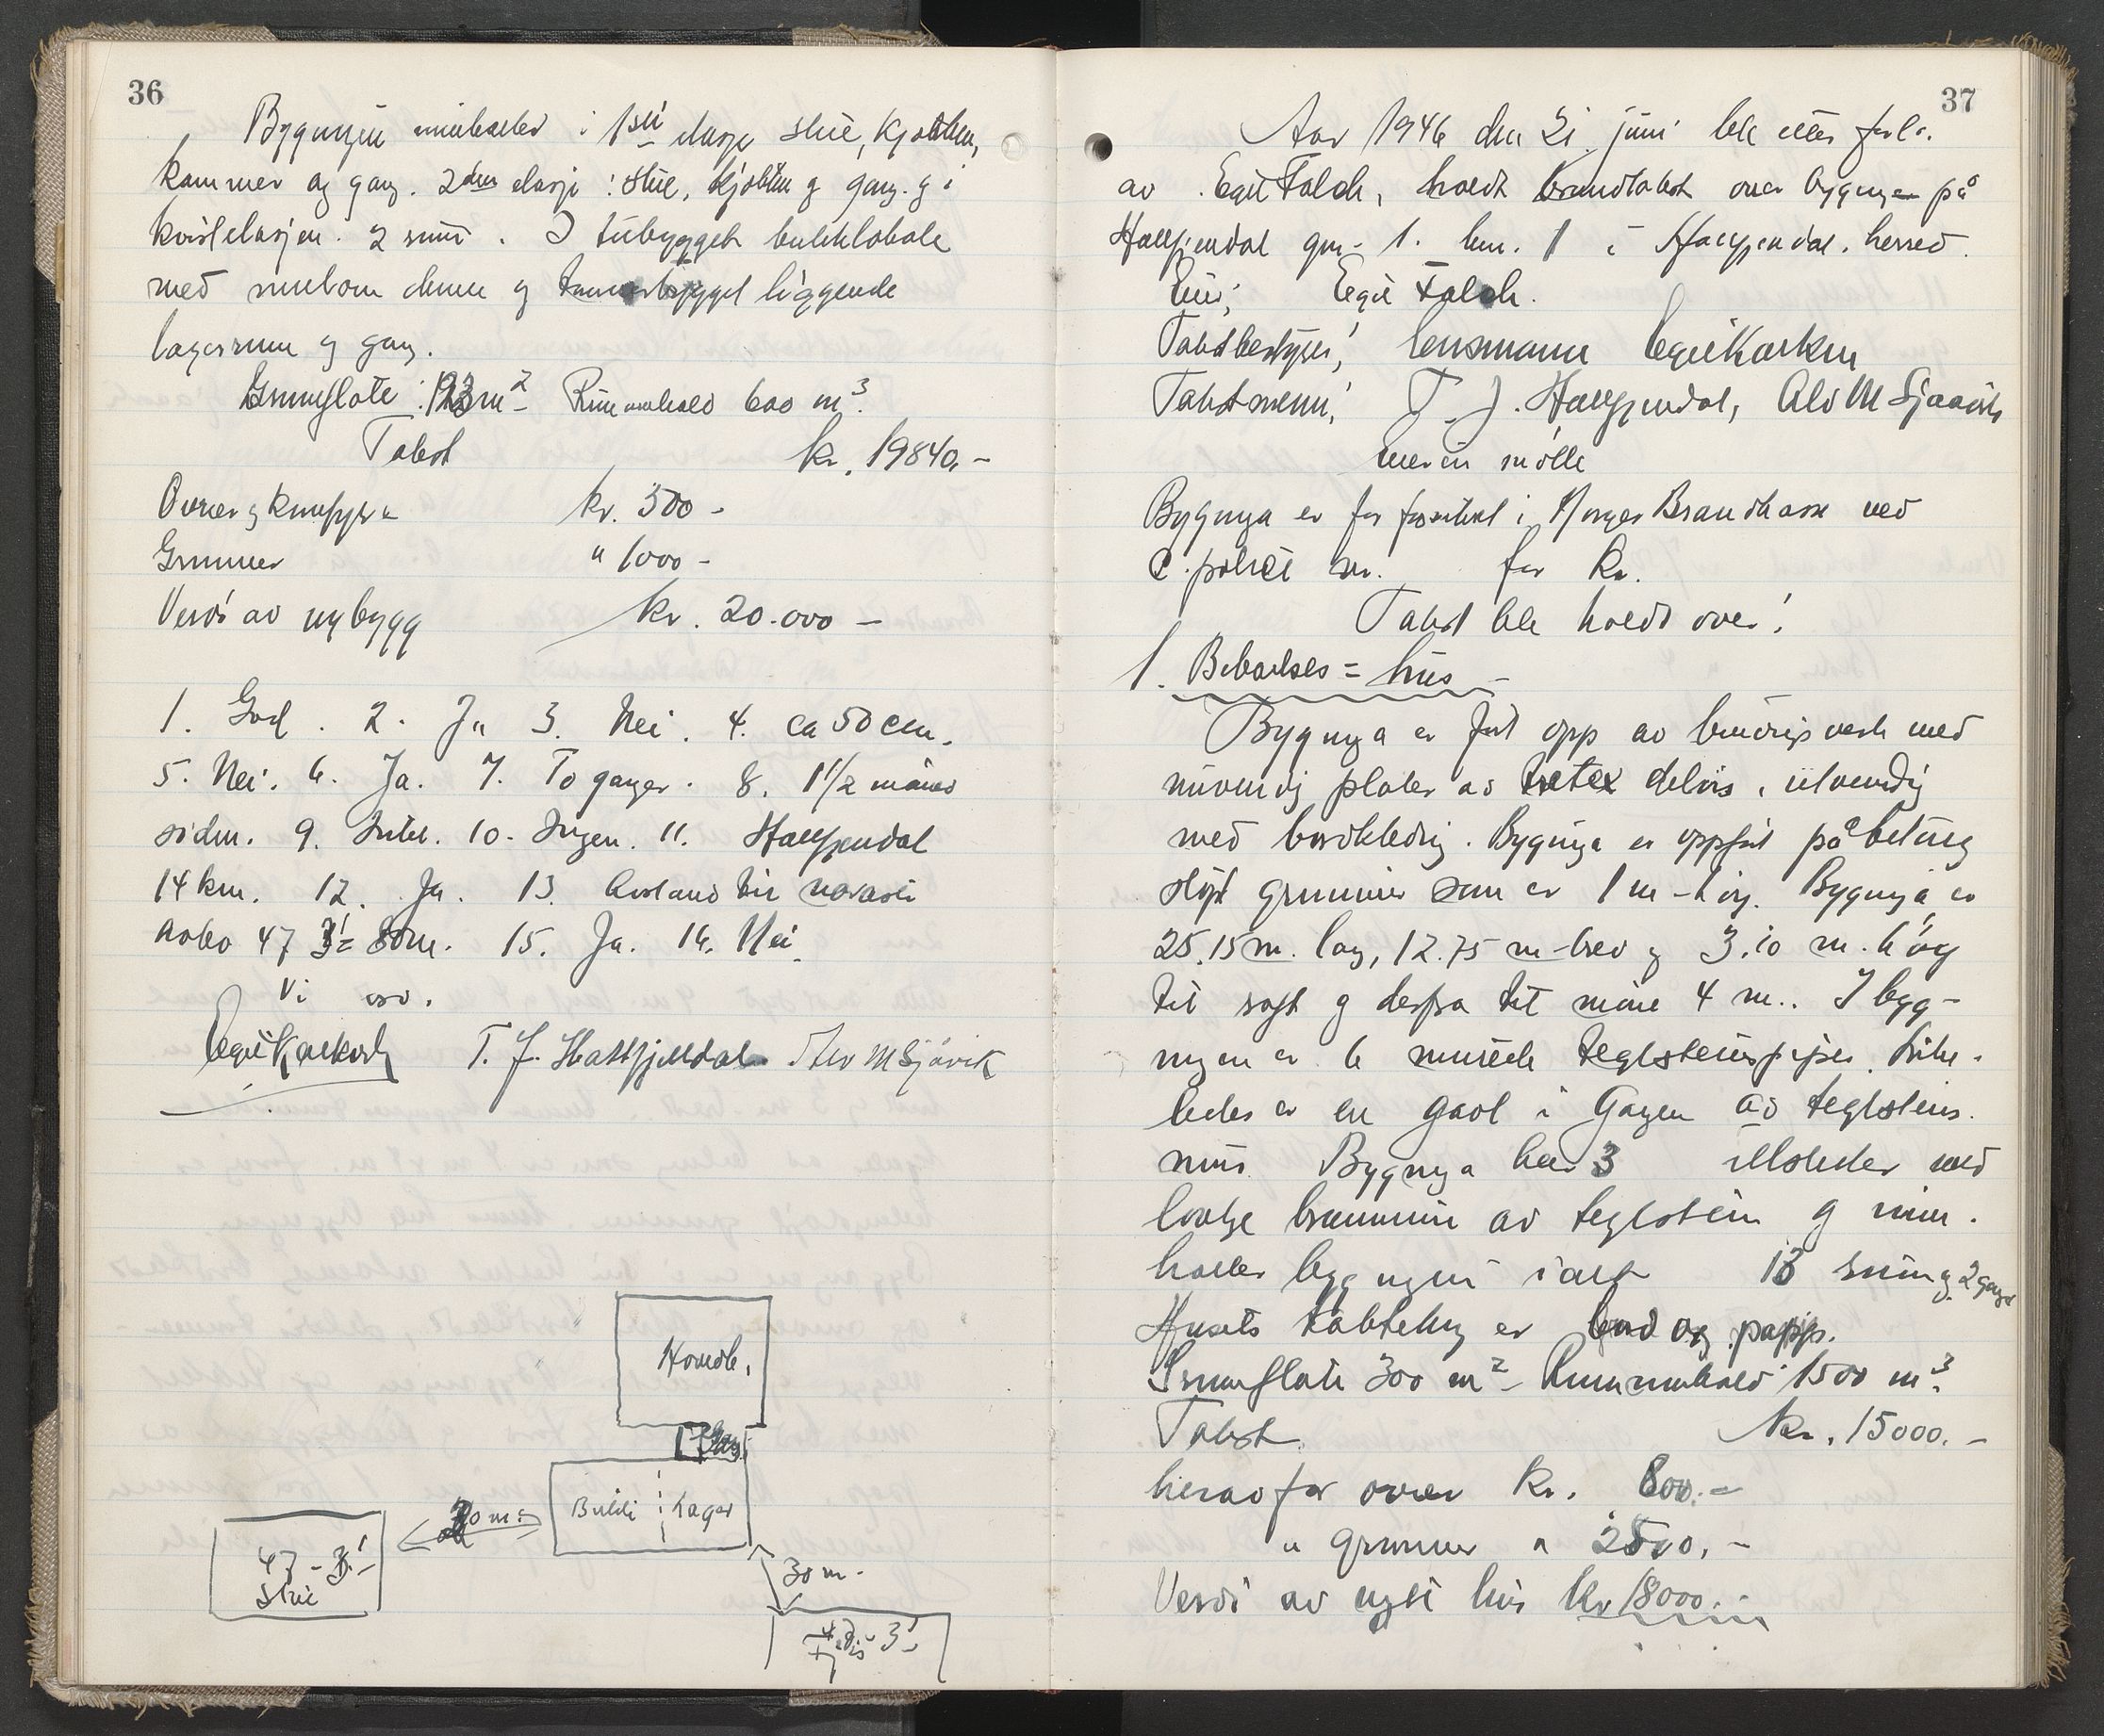 36
Bygningen inneholder i 1ste etasje stue, kjøkken,
kammer og gang. 2den etasje: stue, kjøkken og gang. og i
kvistetasjen. 2 rum. I tilbygget butiklokale
med mellom denne og liggende
lagerrum og gang.
Grunnflate: 123 m2 - Ruminnhold 600 m3.
Takst kr. 19840,-
Ovner og kr. 500 -
Grunner " 1000 -
Verdi av nybygg kr. 20.000 -
1. God. 2. Ja 3. Nei. 4. ca 50 cm.
5. Nei. 6. Ja. 7. To ganger. 8. 1 1/2 måned
siden. 9. Intet. 10. Ingen. 11. Hattfjeldal
14 km. 12. Ja. 13. Avstand til nærmeste
nabo 47 3' = 80 m. 15. Ja. 16. Nei.
Vi
T. J. Hattfjelldal Alv M Sjåvik
Hovedb.
Gang
Butikk Lager
20 m.
47-3'
Stue
30 m.
3'
37
Aar 1946 den 21. juni ble etter forl.
av Egil Falch, holdt brandtakst over bygninger på
Hattfjendal gnr. 1. bnr. 1 i Hattfjendal herred.
Eier; Egil Falch.
Takstbestyrer; lensmann
Takstmenn; T. J. Hattfjendal, Alv M Sjaavik
Bygninga er før forsikret i Norges Brandkasse ved
police nr. for kr.
Takst ble holdt over:
1. Beboelses = hus -
Bygninga er ført opp av bindingsverk med
innvendig plater av tretex delvis, utvendig
med bordkledning. Bygninga er oppført på betong
støpt grunnmur som er 1 m - høg. Bygninga er
25.15 m. lang, 12.75 m - bred og 3.10 m. høg
til raft og derfra til møne 4 m.. I byg-
ningen er 6 murede teglsteinspiper. Like-
ledes er en gavl i Gangen av teglsteins
mur. Bygninga har 3 illsteder med
lovlige brannmur av teglstein og inne-
holder bygningen i alt 13 rum og 2 ganger
Husets taktekking er bord og papp.
Grunnflate 300 m2 - Ruminnhold 1500 m3.
Takst kr. 15000.-
herav for ovner kr. 600.-
" grunner " 2500,-
Verdi av nytt hus kr 18000.-